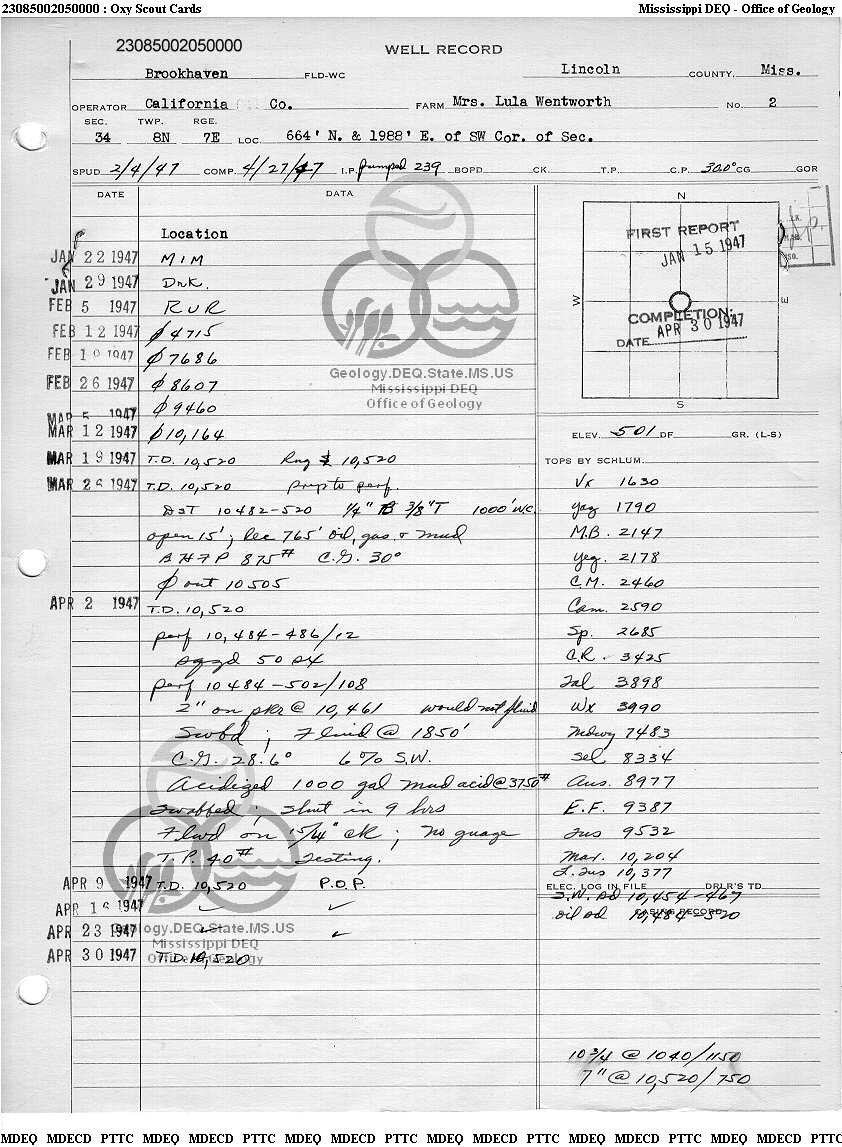 23085002050000 : Oxy Scout Cards Mississippi DEQ - Office of Geology
23085002050000
WELL RECORD
Brookhaven FLD-WC Lincoln COUNTY, Miss.
OPERATOR California Co. FARM Mrs. Lula Wentworth No. 2
SEC. TWP. RGE.
34 8N 7E LOC. 664' N. & 1988' E. of SW Cor. of Sec.
SPUD 2/4/47 COMP. 4/27/47 I.P. pumped 239 BOPD CK. T.P. C.P. 30.0° CG GOR
DATE DATA
Location
JAN 22 1947 MIM
JAN 29 1947 Drk.
FEB 5 1947 RUR
FEB 12 1947 ∅ 4715
FEB 19 1947 ∅ 7686
FEB 26 1947 ∅ 8607
MAR 5 1947 ∅ 9460
MAR 12 1947 ∅ 10,164
MAR 19 1947 T.D. 10,520 Rng 10,520
MAR 26 1947 T.D. 10,520 prep to perf.
DST 10482-520 1/4" B 3/8" T 1000' W.C.
open 15'; Rec 765' oil, gas, & mud
BHFP 875# C.G. 30°
∅ out 10505
APR 2 1947 T.D. 10,520
perf 10,484-486/12
sqzd 50 sx
perf 10484-502/108
2" on pkr @ 10,461 would not fluid
Swbd; Fluid @ 1850'
C.G. 28.6° 6% S.W.
Acidized 1000 gal mud acid @ 3750#
Swabbed; shut in 9 hrs
Flwd on 15/64" ck; no guage
T.P. 40# Testing.
APR 9 1947 T.D. 10,520 P.O.P.
APR 16 1947 ✓ ✓
APR 23 1947 ✓ ✓
APR 30 1947 T.D. 10,520
N
W
E
S
FIRST REPORT
JAN 15 1947
COMPLETION:
APR 30 1947
DATE
ELEV. 501 DF GR. (L-S)
TOPS BY SCHLUM.
Vx 1630
Yaz 1790
M.B. 2147
Yeg. 2178
C.M. 2460
Cam. 2590
Sp. 2685
C.R. 3425
Tal 3898
Wx 3990
Mdwy 7483
Sel 8334
Aus. 8977
E.F. 9387
Tus 9532
Mar. 10,204
L. Tus 10,377
ELEC. LOG IN FILE DRLR'S TD
S.W. sd 10,454-467
CASING RECORD
oil sd 10,484-520
10 3/4 @ 1040/1150
7" @ 10,520/750
Geology.DEQ.State.MS.US
Mississippi DEQ
Office of Geology
Geology.DEQ.State.MS.US
Mississippi DEQ
Office of Geology
MDEQ MDECD PTTC MDEQ MDECD PTTC MDEQ MDECD PTTC MDEQ MDECD PTTC MDEQ MDECD PTTC MDEQ MDECD PTTC